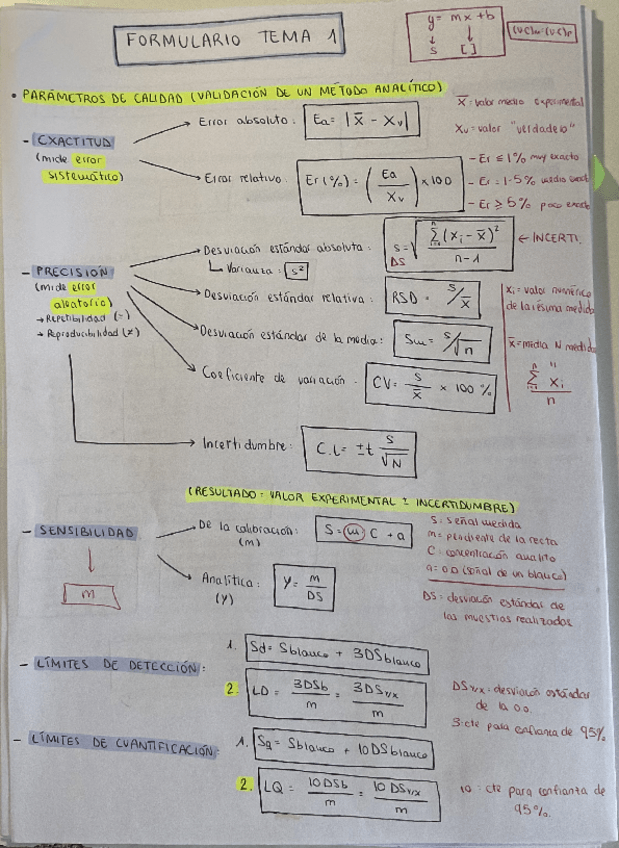 FORMULARIO TEMA 1
y = mx + b
↓ ↓
S [ ]
(VC)c = (VC)f
• PARÁMETROS DE CALIDAD (VALIDACIÓN DE UN MÉTODO ANALÍTICO)
x̅ = valor medio experimental
Xv = valor "verdadero"
- EXACTITUD
(mide error
sistemático)
→ Error absoluto: Ea = |x̅ - Xv|
→ Error relativo: Er(%) = (Ea / Xv) × 100
- Er ≤ 1% muy exacto
- Er = 1-5% medio exact
- Er ≥ 5% poco exacto
- PRECISIÓN
(mide error
aleatorio)
→ Repetibilidad (=)
→ Reproducibilidad (≠)
Desviación estándar absoluta: S = √(Σ(xi - x̅)² / n-1) ← INCERTI.
DS
↳ Varianza: s²
→ Desviación estándar relativa: RSD = s/x̅
→ Desviación estándar de la media: Sm = s/√n
→ Coeficiente de variación - CV = s/x̅ × 100 %
xi = valor numérico
de la iésima medida
x̅ = media N medida
"
Σ xi / n
→ Incertidumbre: C.L = ±t s/√N
(RESULTADO: VALOR EXPERIMENTAL ± INCERTIDUMBRE)
- SENSIBILIDAD
m
→ De la calibración: S = m C + a
(m)
→ Analítica: γ = m/DS
(γ)
S: señal medida
m = pendiente de la recta
C: concentración analito
a = 0.0 (señal de un blanco)
DS = desviación estándar de
las muestras realizadas
- LÍMITES DE DETECCIÓN:
1. Sd = Sblanco + 3DSblanco
2. LD = 3DSb/m = 3DSy/x/m
DSy/x = desviación estándar
de la 0.0.
3: cte para confianza de 95%
- LÍMITES DE CUANTIFICACIÓN:
1. Sq = Sblanco + 10DSblanco
2. LQ = 10DSb/m = 10DSy/x/m
10 = cte para confianza de
95%.